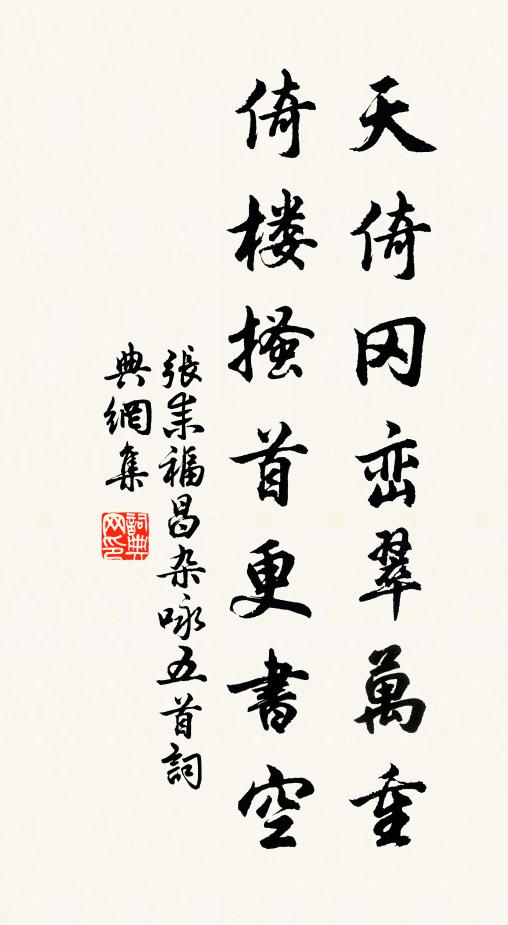 天倚冈峦翠萬重
倚楼搔首更書空
張耒福昌杂咏五首詞
典網集
詞典
网印